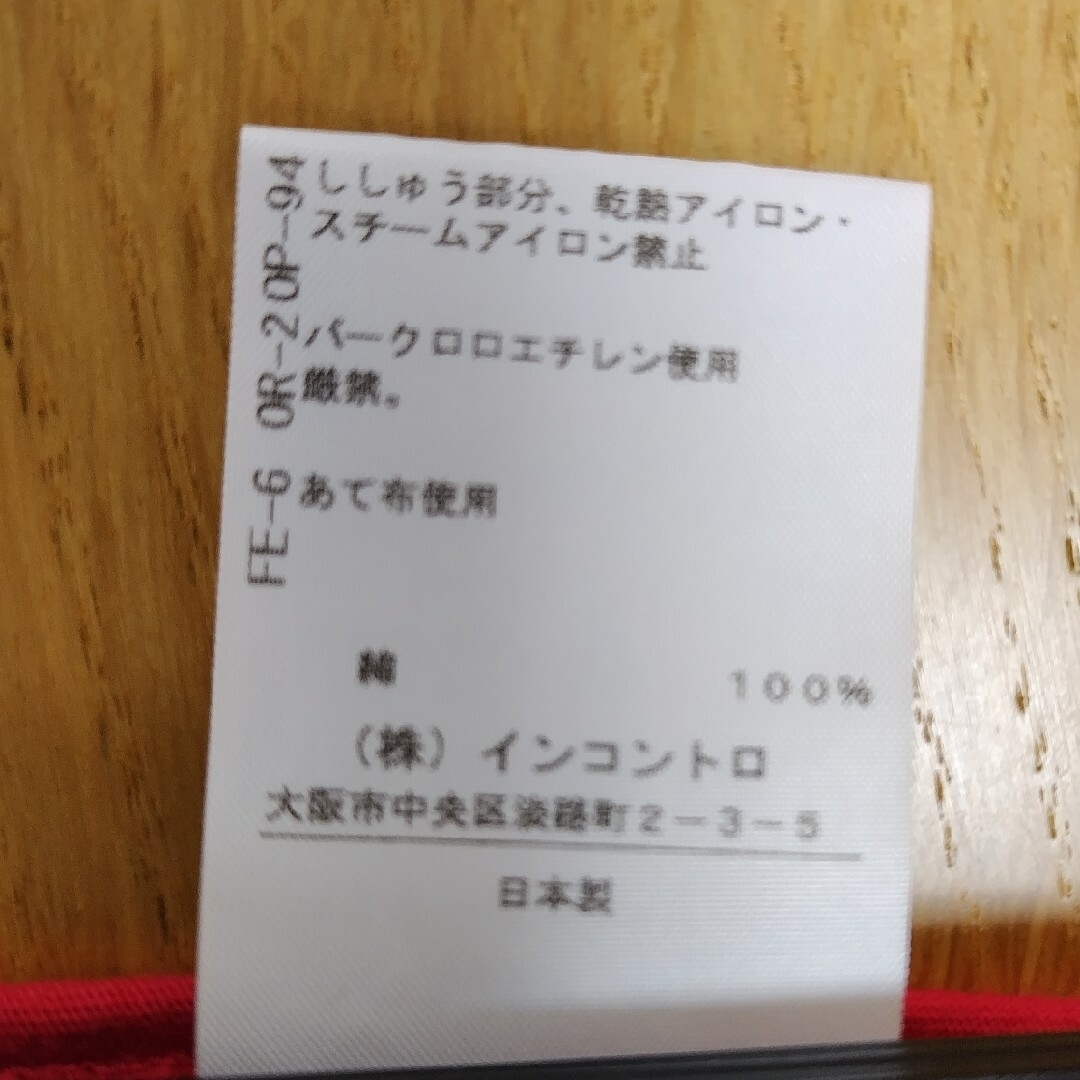 ししゅう部分、乾熱アイロン・
スチームアイロン禁止
パークロロエチレン使用
厳禁。
あて布使用
綿 100%
(株)インコントロ
大阪市中央区淡路町2-3-5
日本製
FE-6 OR-2 OP-94